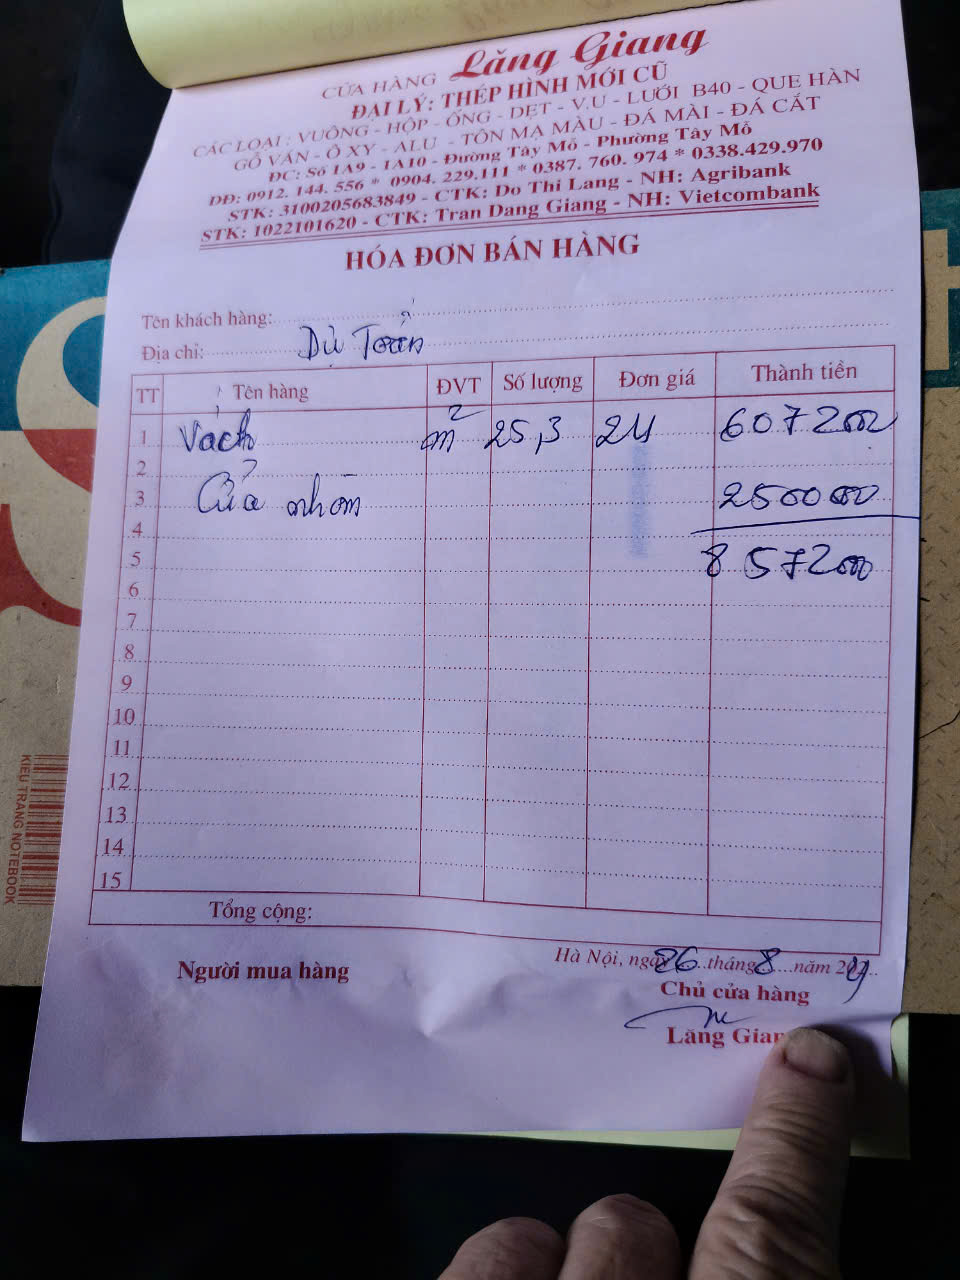 CỬA HÀNG Lăng Giang
ĐẠI LÝ: THÉP HÌNH MỚI CŨ
CÁC LOẠI : VUÔNG - HỘP - ỐNG - DẸT - V.U - LƯỚI B40 - QUE HÀN
GỖ VÁN - Ô XY - ALU - TÔN MẠ MÀU - ĐÁ MÀI - ĐÁ CẮT
ĐC: Số 1A9 - 1A10 - Đường Tây Mỗ - Phường Tây Mỗ
DĐ: 0912. 144. 556 * 0904. 229.111 * 0387. 760. 974 * 0338.429.970
STK: 3100205683849 - CTK: Do Thi Lang - NH: Agribank
STK: 1022101620 - CTK: Tran Dang Giang - NH: Vietcombank
HÓA ĐƠN BÁN HÀNG
Tên khách hàng:
Địa chỉ: Dự Toán
TT Tên hàng ĐVT Số lượng Đơn giá Thành tiền
1 Vách m² 25,3 24 6072000
2
3 Cửa nhôm 2500000
4
5 8572000
6
7
8
9
10
11
12
13
14
15
Tổng cộng:
Hà Nội, ngày 26 tháng 8 năm 2024
Người mua hàng Chủ cửa hàng
Lăng Gian
KIỀU TRANG NOTEBOOK